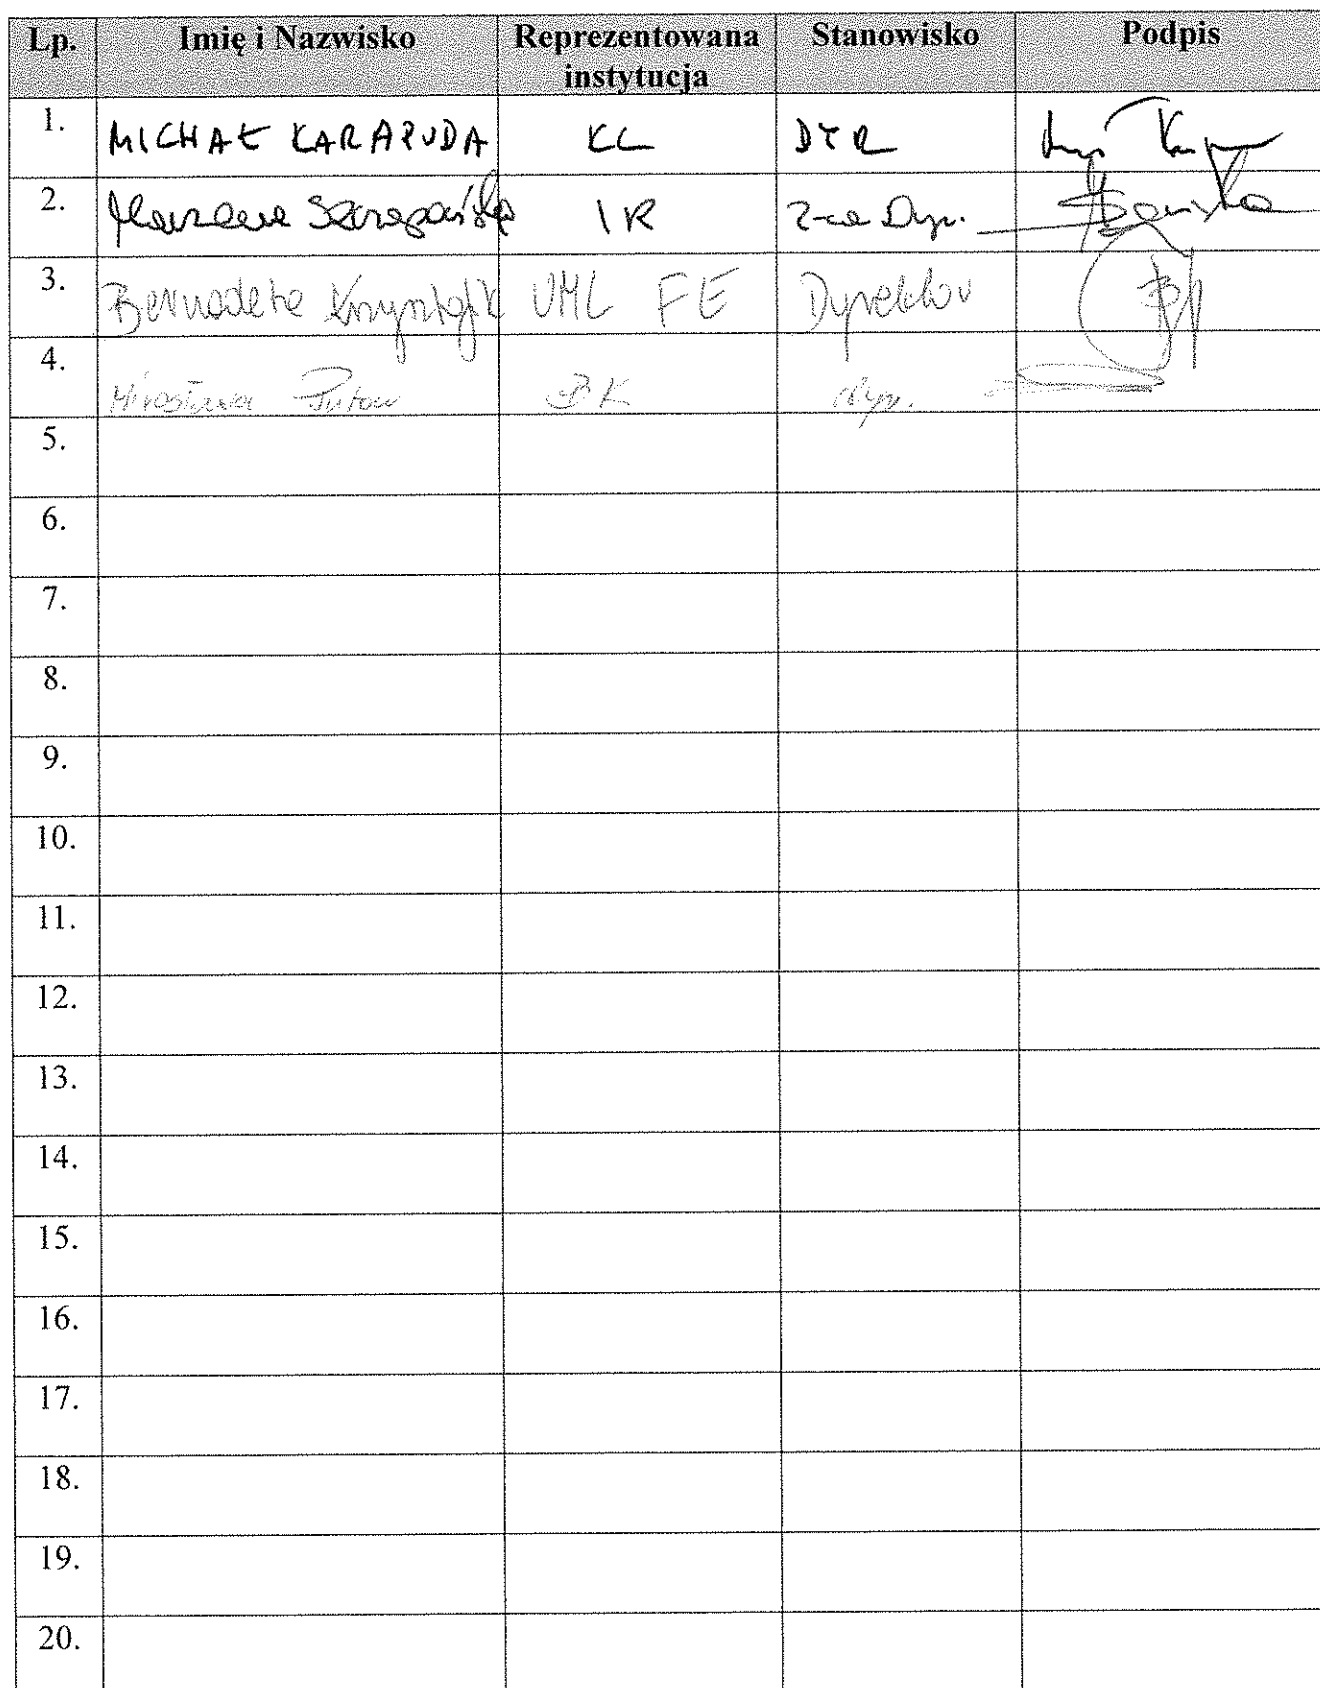 Lp. Imię i Nazwisko Reprezentowana instytucja Stanowisko Podpis
1. MICHAŁ KARAPUDA KL DYR
2. Marzena Szczepańska IR Z-ca Dyr.
3. Bernadeta Krzysztofik UML FE Dyrektor
4. Mirosława BK Dyr.
5.
6.
7.
8.
9.
10.
11.
12.
13.
14.
15.
16.
17.
18.
19.
20.